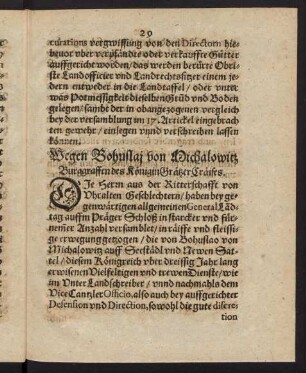 29
curations vergwissung von den Directorn hie-
bevor vber verpfändte oder verkauffte Gütter
auffgericht worden/ das werden berürte Obri-
ste Landofficier vnd Landrechtssitzer einem je-
dern entweder in die Landtaffel/ oder vnter
was Potmessigkeit dieselben Gründ vnd Boden
gelegen/ sambt der in obangezogenen vergleich
bey der versamblung im 17. Artickel eingebrach-
ten gewehr/ einlegen vnnd verschreiben lassen
können.
Wegen Bohuslaj von Michalowitz
Burggraffen des Königin Grätzer Cräises.
DIe Herrn aus der Ritterschafft von
Vhralten Geschlechtern/ haben bey ge-
genwärtigen allgemeinen General Lād-
tag auffm Präger Schloß in starcker vnd für-
nemer Anzahl versamblet/ in räiffe vnd fleissi-
ge erwegung gezogen/ die von Bohuslao von
Michalowitz auff Seestädl vnd Newen Sat-
tel/ diesem Königreich vber dreissig Jahr lang
erwisenen Vielfeltigen vnd trewen Dienste/ wie
im Vnter Landschreiber/ vnnd nachmahls dem
Vice Cantzler Officio, also auch bey auffgerichter
Defension vnd Direction, sowohl die gute discre-
tion